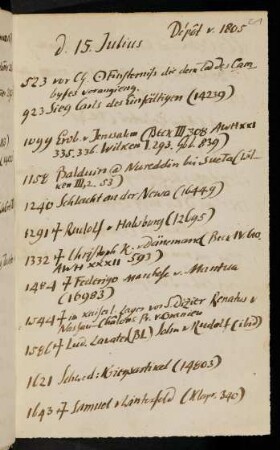 Dépôt v. 1805
d. 15. Julius
523 vor Ch. ☉Finsterniß die dem Tod des Cam-
byses voranging.
923 Sieg Carls des Einfältigen (14239)
1099 Erob. v. Jerusalem (Beck III 308 AWH XXI
335. 336. Wilken I 293. 839)
1158 Balduin Nureddin bei Sueta (Wil-
ken III, 2. 53)
1240 Schlacht an der Newa (16449)
1291 † Rudolf v. Habsburg (12695)
1332 † Christoph K. v. Dänemark (Beck IV 60.
AWH XXXII 593)
1484 † Federigo Marchese v. Mantua
(16983)
1544 † im kaiserl. Lager vor S. Dizier Renatus v
Nassau-Chalons Pr. v. Oranien
1586 † Lud. Lavater (BL) Sohn v. Rudolf (ibid)
1621 Schwed: Kriegsartikel (14803)
1643 † Samuel v. (Klopp. 340)